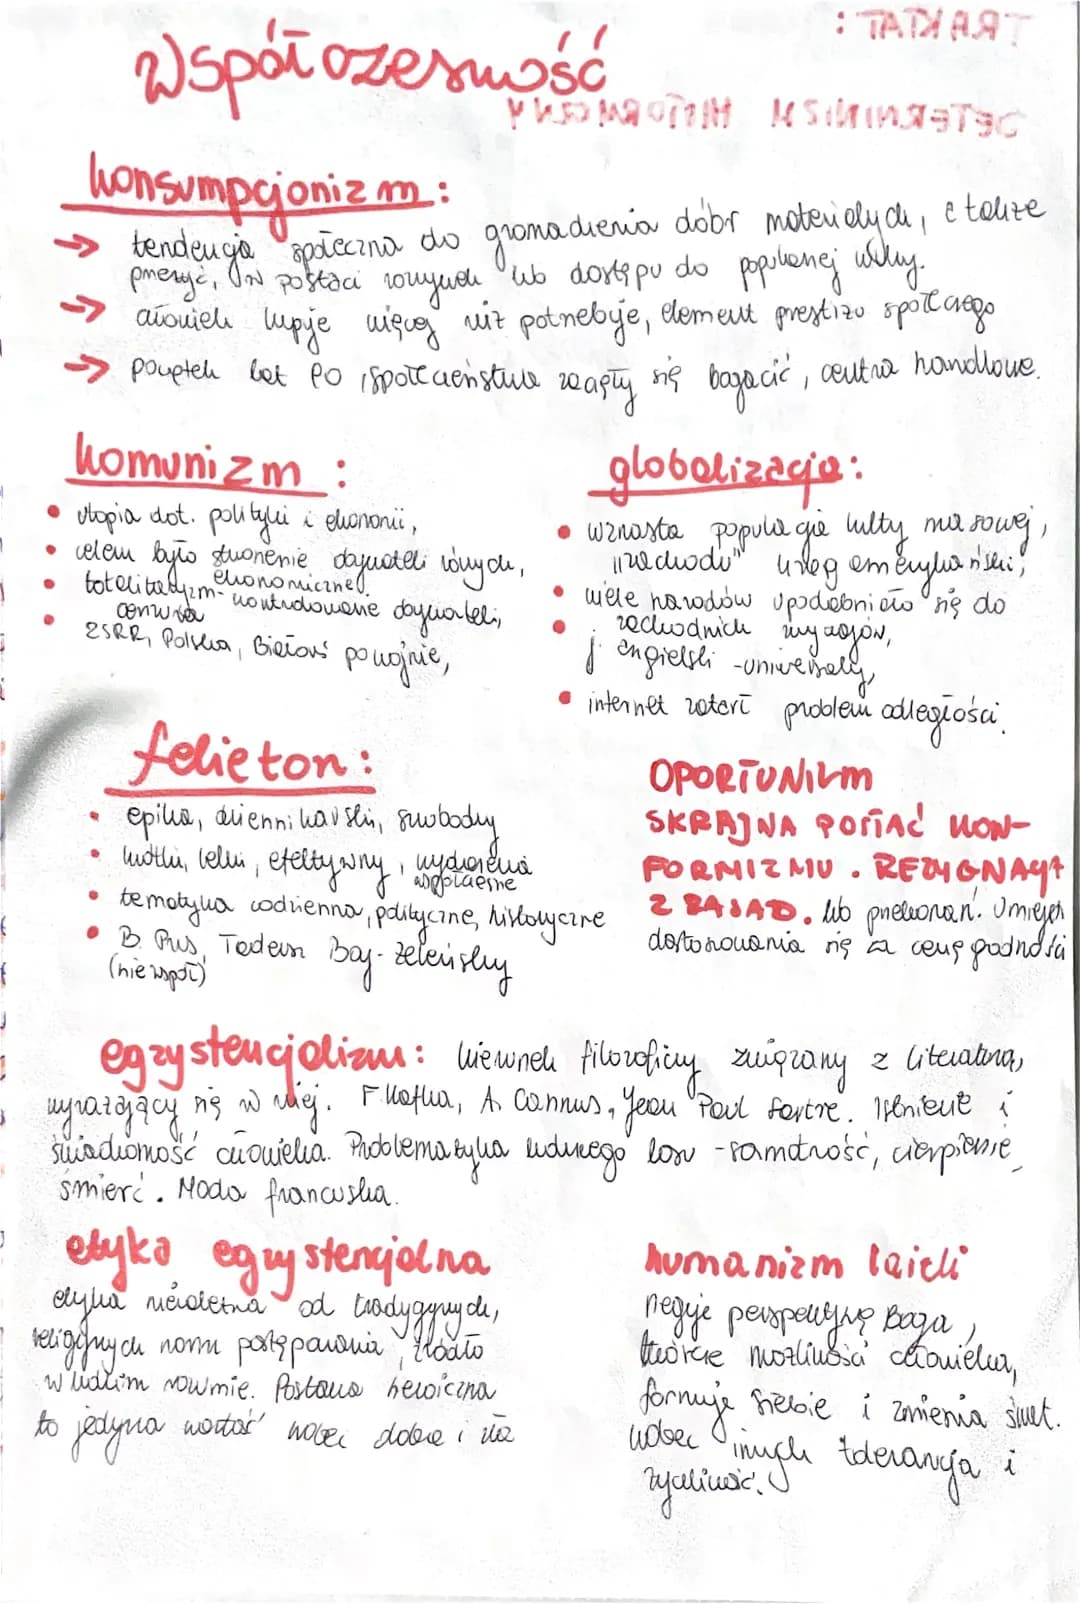 Współczesność
konsumpcjonizm:
→ tendencja społeczna do gromadzenia dóbr materialnych, a także
przeżyć, w postaci lub dostępu do popularnej
→ człowiek kupje więcej niż potrzebuje, element prestiżu społecznego
→ początek lat PO, społeczeństwa zaczęły się bogacić, centra handlowe.
komunizm:
• utopia dot. polityki i ekonomii,
• celem było stworzenie obywateli równych,
ekonomicznej
• totalitaryzm - kontrolowanie obywateli,
cenzura
• ZSRR, Polska, Białoruś powojnie,
globalizacja:
• wzrasta populacja kultury masowej,
"zachodu" amerykański,
• wiele narodów upodobniało się do
zachodnich
• j. angielski - uniwersalny,
• internet zatarł problem odległości.
felieton:
• epika, dziennikarski, swobodny
• krótki, lekki, efektywny, wydarzenia
współczesne
• tematyka codzienna, polityczne, historyczne
• B. Prus, Tadeusz Boy-Żeleński
(nie współ)
OPORTUNIZM
SKRAJNA POSTAĆ KON-
FORMIZMU. REZYGNACJA
Z ZASAD. lub przekonań. Umiejęt
dostosowania się za cenę godności
egzystencjalizm: kierunek filozoficzny związany z literaturą,
wyrażający się w niej. F. Kafka, A. Cammus, Jean Paul Sartre. Istnienie i
świadomość człowieka. Problematyka ludzkiego losu - samotność, cierpienie,
śmierć. Moda francuska.
etyka egzystencjalna
etyka niezależna od tradycyjnych,
religijnych norm postępowania, źródło
w ludzkim rozumie. Postawa heroiczna
to jedyna wartość wobec dobra i zła
humanizm laicki
neguje perspektywę Boga,
twórcze możliwości człowieka,
formuje siebie i zmienia świat.
wobec innych tolerancja i
życzliwość.
TRAKTAT:
DETERMINIZM HISTORYCZNY